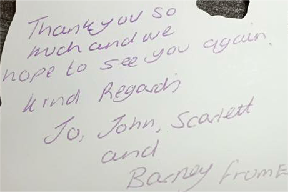 Thankyou so
much and we
hope to see you again.
kind Regards
Jo, John, Scarlett
and
Barney Frome